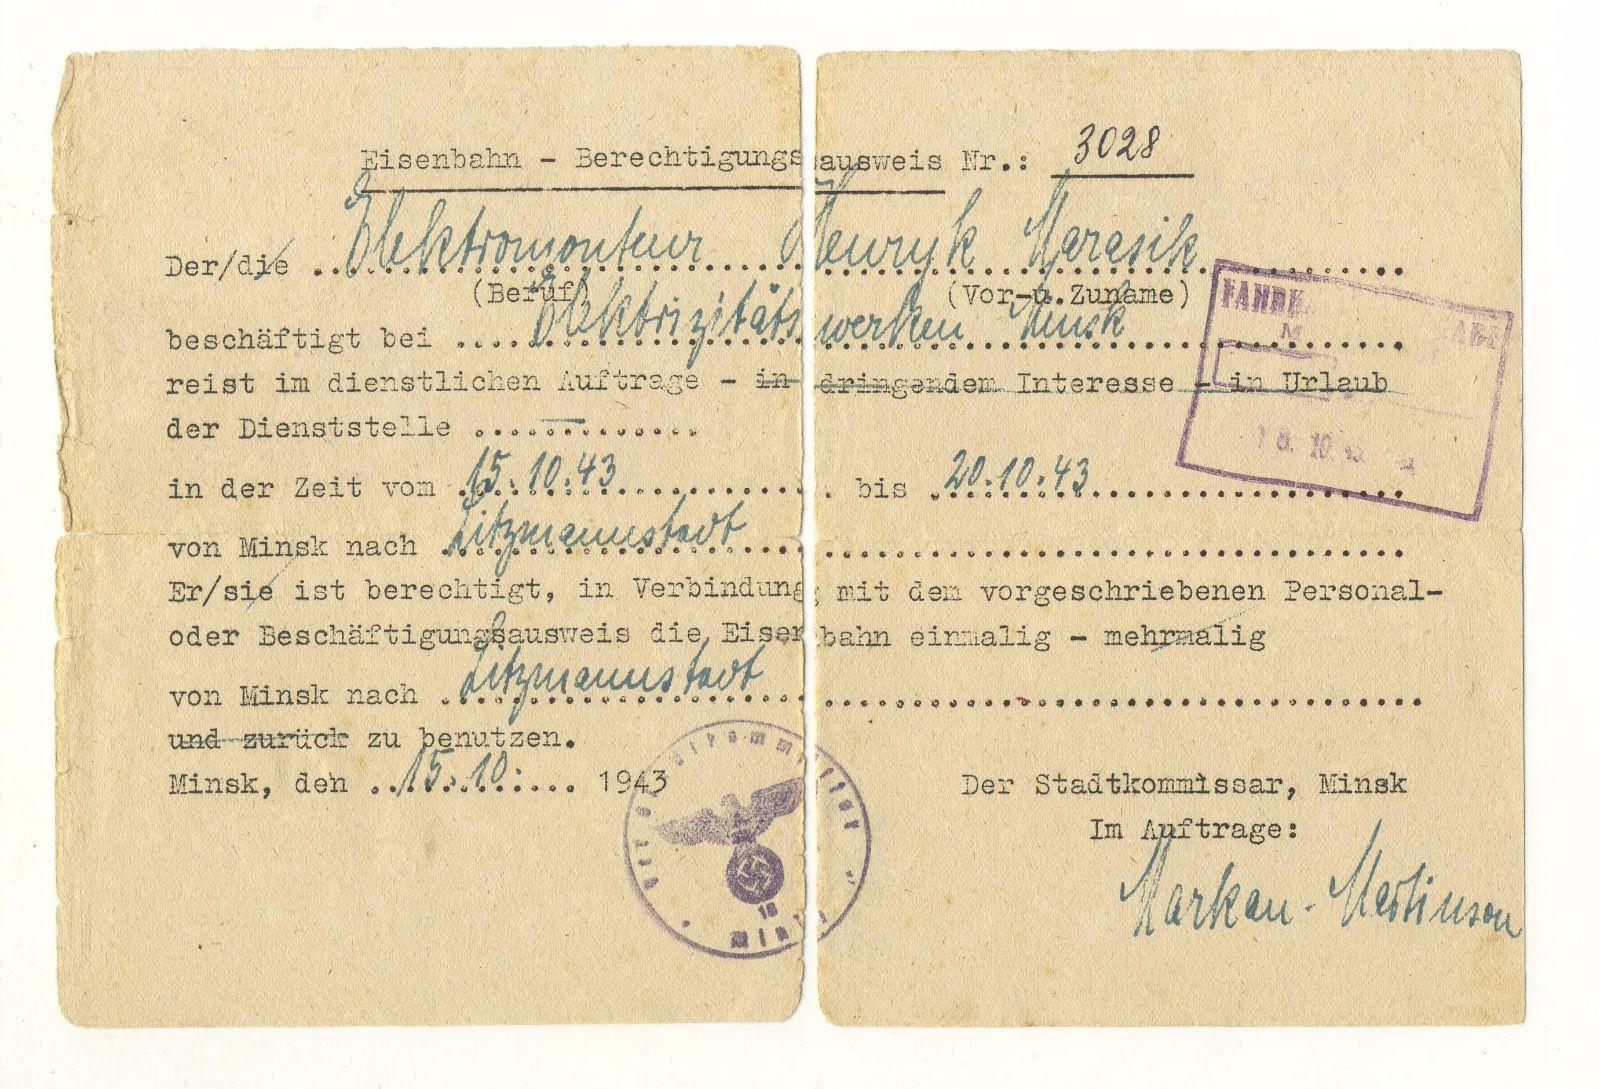 Eisenbahn - Berechtigungsausweis Nr.: 3028
Der/die Elektromonteur Henryk Marasik
(Beruf) (Vor-u. Zuname)
beschäftigt bei Elektrizitätswerken Minsk
reist im dienstlichen Auftrage - in dringendem Interesse - in Urlaub
der Dienststelle
in der Zeit vom 15.10.43 bis 20.10.43
von Minsk nach Litzmannstadt
Er/sie ist berechtigt, in Verbindung mit dem vorgeschriebenen Personal-
oder Beschäftigungsausweis die Eisenbahn einmalig - mehrmalig
von Minsk nach Litzmannstadt
und zurück zu benutzen.
Minsk, den 15.10. 1943
Der Stadtkommissar, Minsk
Im Auftrage:
Markau-Martinson
18
Minsk